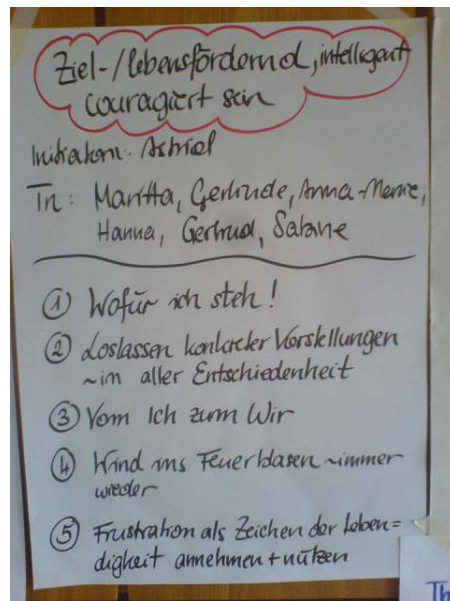 Ziel-/lebensfördernd, intelligent
couragiert sein
Initiatorin: Astrid
Tn: Maritta, Gertrude, Anna-Marie,
Hanna, Gertrud, Sabine
① Wofür ich steh!
② Loslassen konkreter Vorstellungen
~im aller Entschiedenheit
③ Vom Ich zum Wir
④ Wind ins Feuer blasen ~immer
wieder
⑤ Frustration als Zeichen der Leben=
digkeit annehmen + nützen
Th